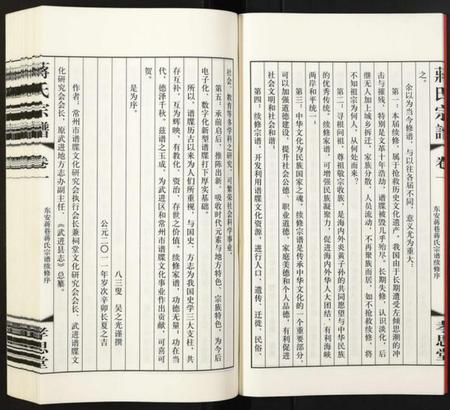 蒋氏宗谱
卷一
东安蒋巷蒋氏宗谱续修序
孝思堂
之。
余以为当今修谱，与以往各届不同，意义尤为重大：
第一，本届续修，属于抢救历史文化遗产。我国由于长期遭受左倾思潮的冲
击与摧残，特别是文革十年浩劫，谱牒被毁几乎殆尽。长期失修，认识淡化，后
继无人加上城乡拆迁，家族分散，人员流动，不再聚族而居，如不抢救续修，将
不知祖宗为何人，从何处而来？
第二，寻祖问祖，尊祖敬宗收族，是海内外炎黄子孙的共同愿望与中华民族
的优秀传统，续修家谱，可增强民族凝聚力，促进海内外华人大团结，有利海峡
两岸和平统一。
第三，中华文化为民族国家之魂。续修宗谱是传承中华文化的一个重要部分，
可以加强道德建设，提升社会公德、职业道德、家庭美德和个人品德，有利促进
社会文明和社会和谐。
第四，续修宗谱，开发利用谱牒文化资源，进行人口、遗传、迁徙、民俗、
社会、教育等多学科之研究，可繁荣社会科学事业。
第五，承前启后，推陈出新，吸收时代元素与地方特色、宗族特色，为今后
电子化、数字化新型谱牒打下厚实基础。
所以，谱牒历古以来为人们所重视，与国史、方志为我国史学三大支柱，共
存互补，互为辉映，有教化、资治、存世之价值。续修家谱，功德无量；功在当
代，德泽千秋。兹谱之玉成，为武进区和常州市谱牒文化事业作出贡献，可喜可
贺。
是为序。
八三叟　吴之光谨撰
公元二〇一一年岁次辛卯长夏之吉
作者，常州市谱牒文化研究会执行会长兼祠堂文化研究会会长、武进谱牒文
化研究会会长，原武进地方志办副主任、《武进县志》总纂。
蒋氏宗谱
卷一
东安蒋巷蒋氏宗谱续修序
孝思堂